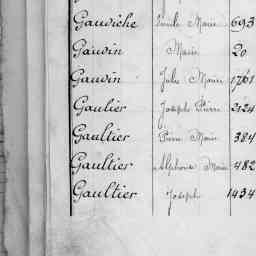 Gauviche Emile Marie 693
Gauvin Marie 20
Gauvin Julie Marie 1761
Gaulier Joseph Pierre 2124
Gaultier Pierre Marie 384
Gaultier Alphonse Marie 482
Gaultier Joseph 1434